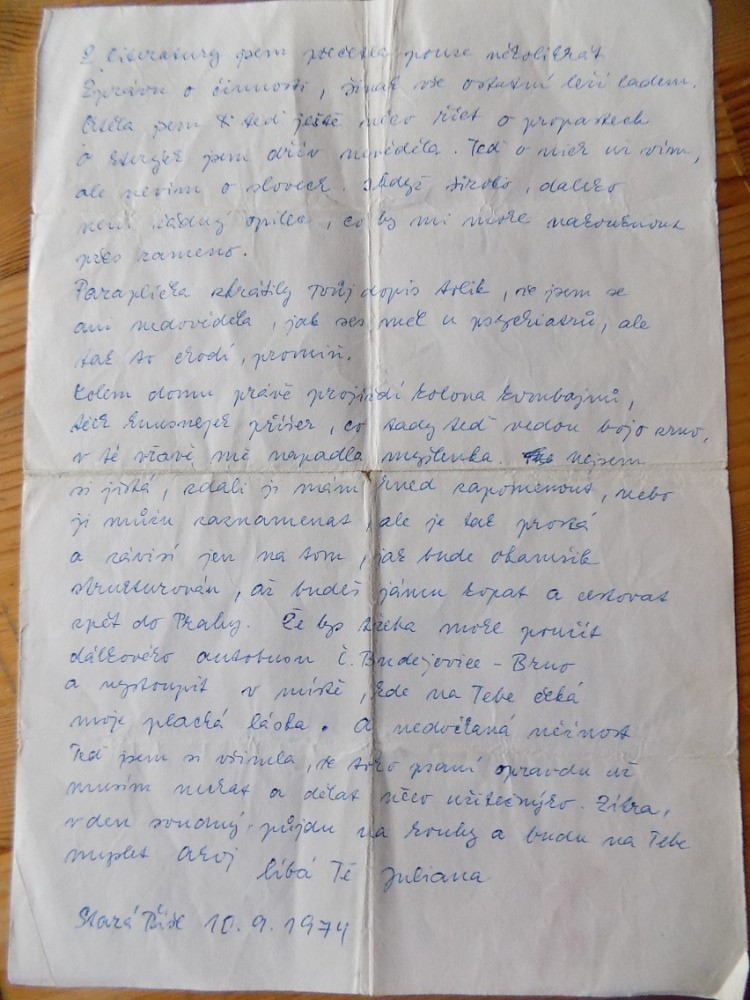 Z literatury jsem přečetla pouze několikrát
Zprávu o činnosti, jinak vše ostatní leží ladem.
Chtěla jsem ti teď ještě něco říct o propastech
O jsem dřív nevěděla. Teď o nich už vím,
ale nevím o slovech. široko, daleko
není žádný opilec, co by mi mohl nakouknout
přes rameno.
Paraplíčka zkrátily Tvůj dopis tolik, že jsem se
ani nedověděla, jak ses měl u psychiatrů, ale
tak to chodí, promiň.
Kolem domu právě projíždí kolona kombajnů,
těch hnusnejch příšer, co tady teď vedou boj o zrno,
v té vřavě mě napadla myšlenka. nejsem
si jistá, zdali ji mám hned zapomenout, nebo
ji můžu zaznamenat, ale je tak prostá
a závisí jen na tom, jak bude okamžik
strukturován, až budeš jámu kopat a cestovat
zpět do Prahy. Že bys třeba mohl použít
dálkového autobusu Č. Budějovice - Brno
a vystoupit v místě, kde na Tebe čeká
moje plachá láska. A nedočkaná něžnost
Teď jsem si všimla, že toho psaní opravdu už
musím nechat a dělat něco užitečnýho. Zítra,
v den soudný, půjdu na houby a budu na Tebe
myslet Ahoj
líbá Tě Juliana
Stará Říše 10. 9. 1974